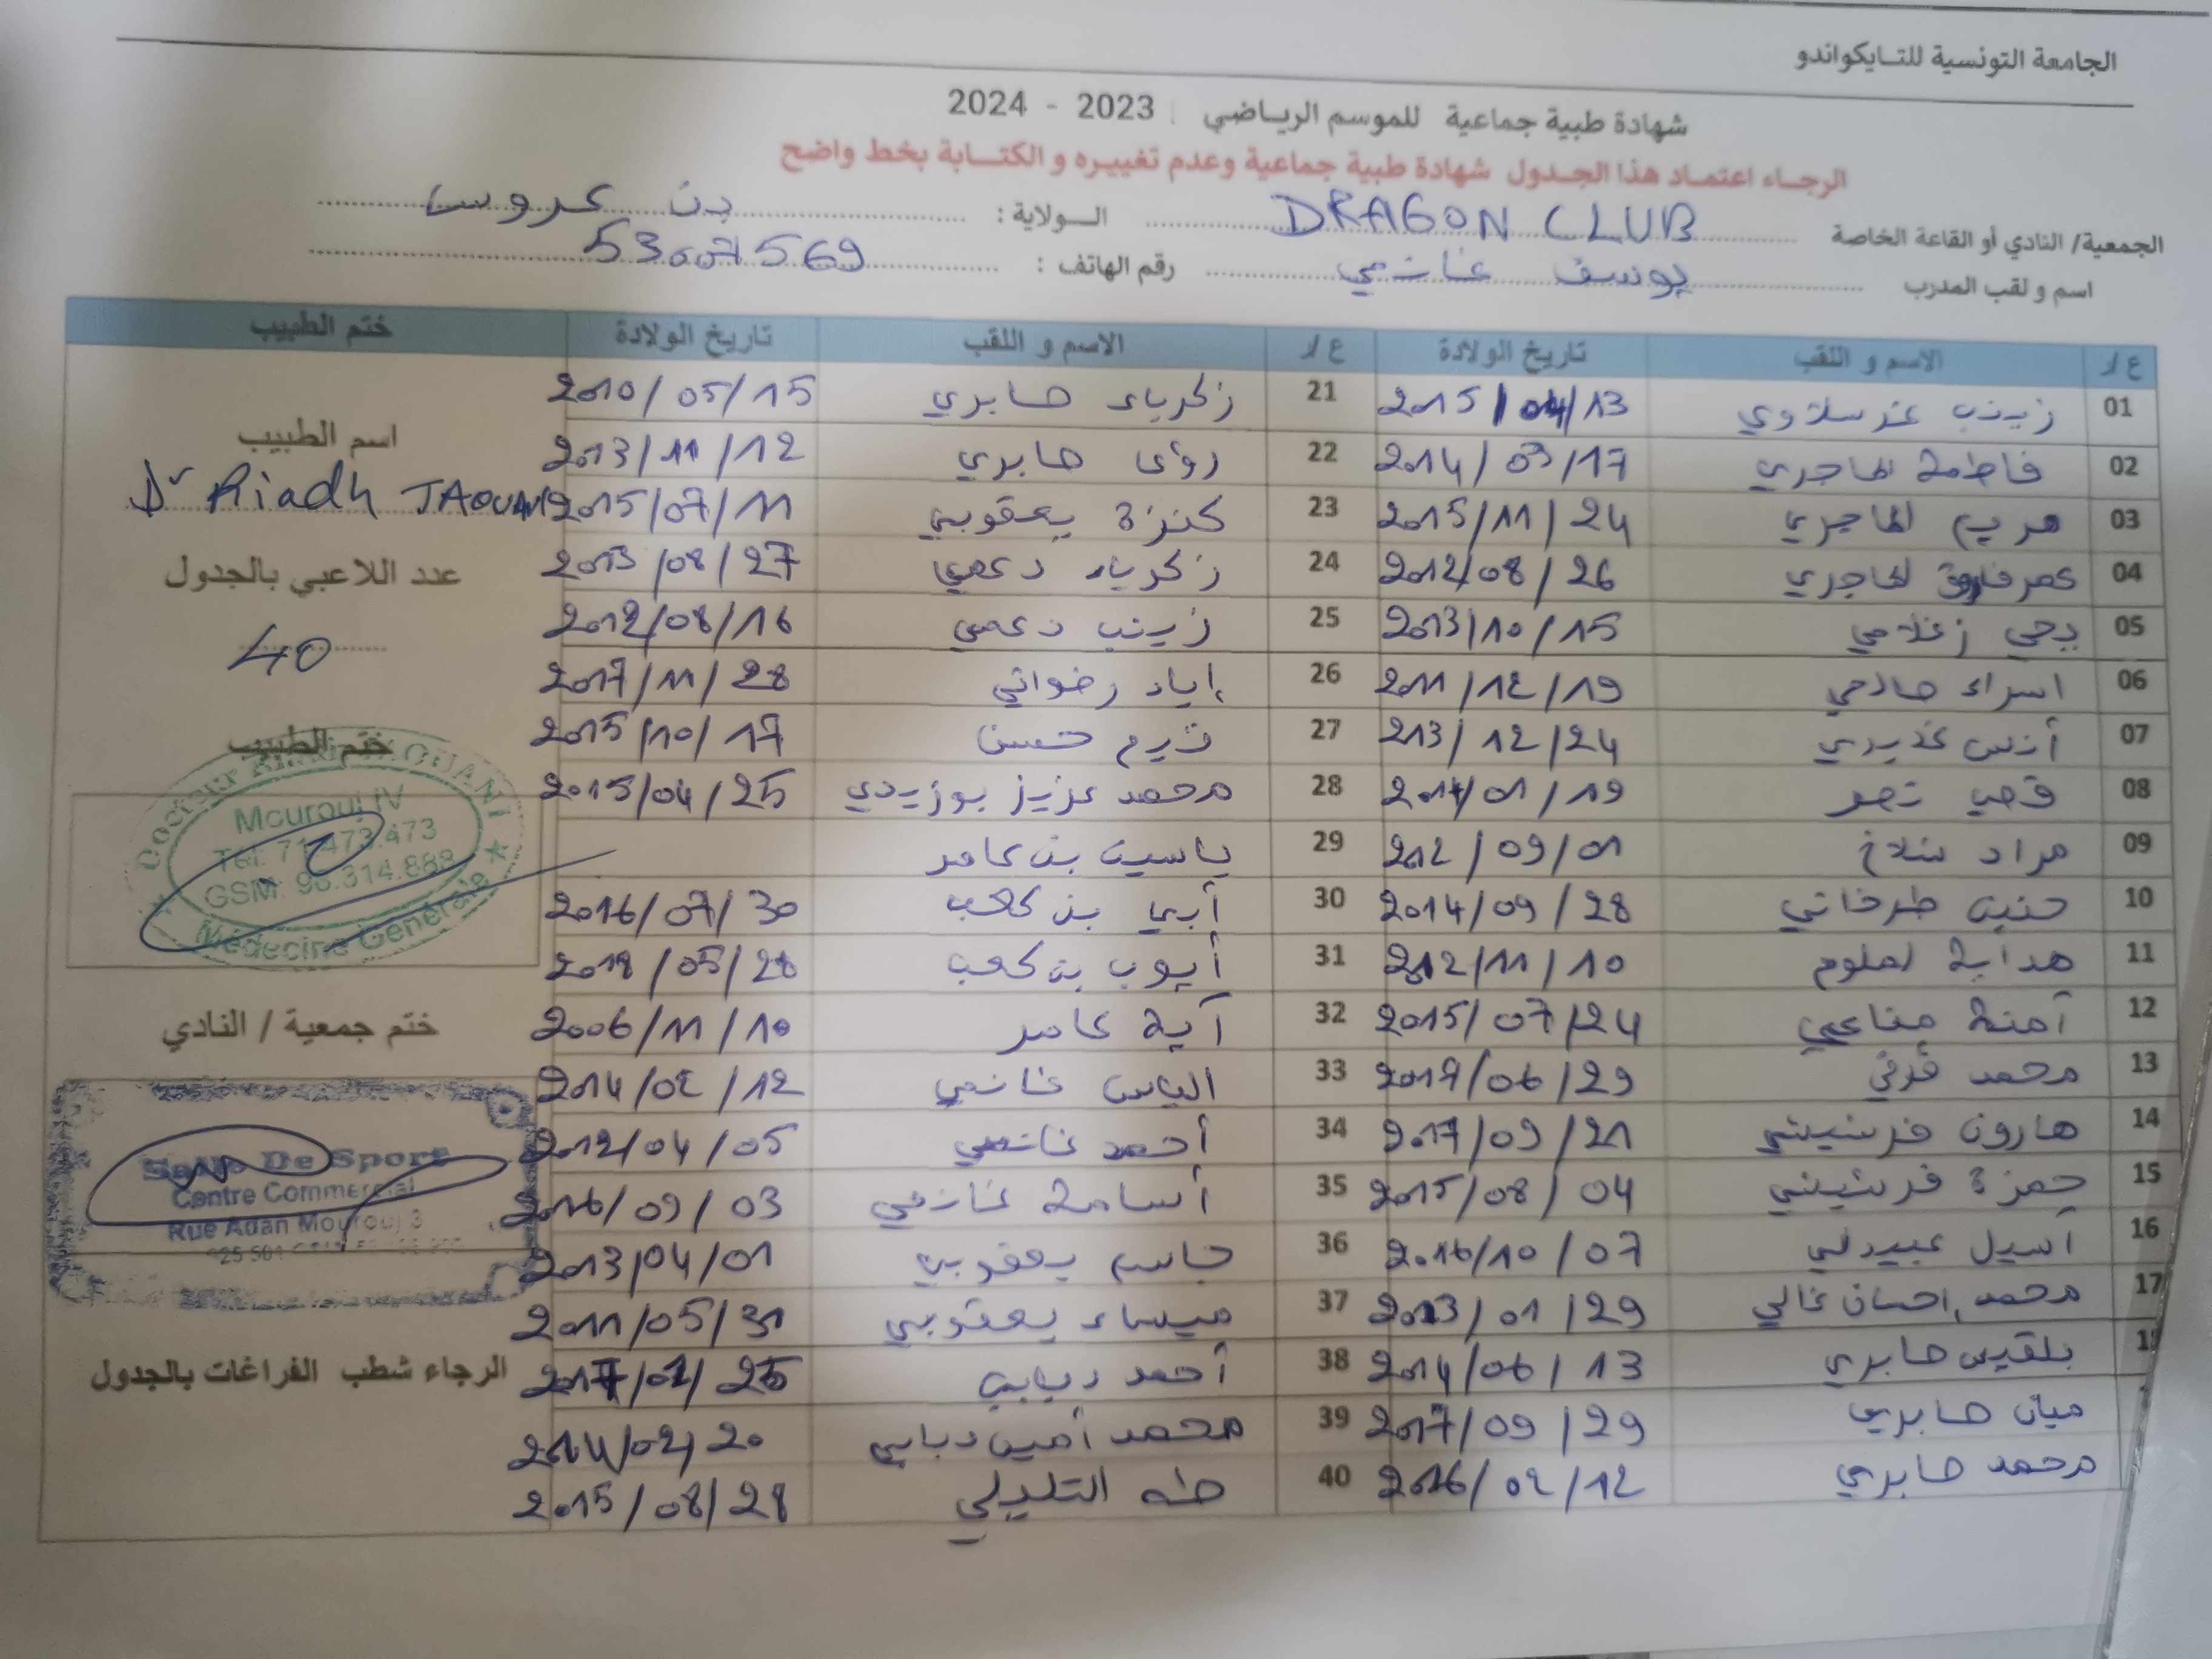 الجامعة التونسية للتـايكواندو
شهادة طبية جماعية للموسم الرياضي 2023 - 2024
الرجـاء اعتمـاد هذا الجـدول شهادة طبية جماعية وعدم تغييـره و الكتـابة بخط واضح
الجمعية/ النادي أو القاعة الخاصة DRAGON CLUB الـولاية : بن عروس
اسم و لقب المدرب يوسف غانمي رقم الهاتف : 53007569
ع/ر الاسم و اللقب تاريخ الولادة ع/ر الاسم و اللقب تاريخ الولادة ختم الطبيب
01 زينب عرسلاوي 2015/04/13 21 زكرياء صابري 2010/05/15
اسم الطبيب
02 فاطمة الهاجري 2014/03/17 22 رؤى صابري 2013/11/12
Dr Riadh JAOUANI
03 مريم الهاجري 2015/11/24 23 كنزة يعقوبي 2015/07/11
04 عمر فاروق الهاجري 2012/08/26 24 زكرياء دعمي 2013/08/27
عدد اللاعبي بالجدول
05 يحي زغلامي 2013/10/15 25 زينب دعمي 2012/08/16
40
06 اسراء صالحي 2011/12/19 26 إياد رضواني 2017/11/28
07 أنس 213/12/24 27 حسن 2015/10/17
ختم الطبيب
08 قصي نصر 2014/01/19 28 محمد عزيز بوزيدي 2015/04/25
Docteur Riadh JAOUANI
Mourouj IV
Tél: 71.473.473
GSM: 98.314.888
Médecine Générale
09 مراد 212/09/01 29 ياسين بن عامر
10 حنين طرخاني 2014/09/28 30 أبي بن كعب 2016/07/30
11 هداية لملوم 2012/11/10 31 أيوب بن كعب 2018/05/28
12 آمنة مناعي 2015/07/24 32 آية عامر 2006/11/10
ختم جمعية / النادي
13 محمد قرني 2017/06/29 33 الياس غانمي 2014/02/12
14 هارون فرشيشي 2017/09/21 34 أحمد غانمي 2012/04/05
Salle De Sport
Centre Commercial
Rue Adan Mourouj 3
15 حمزة فرشيشي 2015/08/04 35 أسامة غانمي 2016/09/03
16 أسيل عبيدلي 2016/10/07 36 جاسم يعقوبي 2013/04/01
17 محمد إحسان غالي 2013/01/29 37 ميساء يعقوبي 2011/05/31
بلقيس صابري 2014/06/13 38 أحمد ديابي 2017/02/25
الرجاء شطب الفراغات بالجدول
ميان صابري 2017/09/29 39 محمد أمين ديابي 2014/02/20
محمد صابري 2016/02/12 40 طه التليلي 2015/08/28